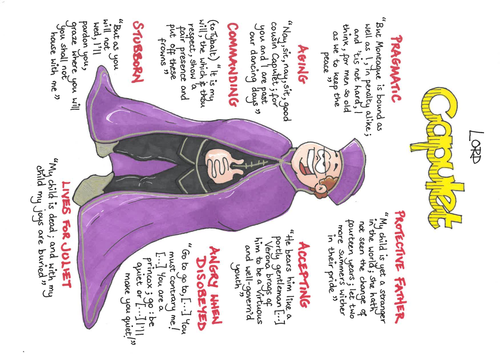 LORD
Capulet
PRAGMATIC
"But Montague is bound as
well as I, in penalty alike;
and 'tis not hard, I
think, for men so old
as we to keep the
peace"
AGING
"Nay, sit, nay, sit, good
cousin Capulet; for
you and I are past
our dancing days"
COMMANDING
(to Tybalt) "It is my
will, the which if thou
respect, show a
fair presence and
put off these
frowns"
STUBBORN
"But as you
will not
wed, I'll
pardon you;
graze where you will
you shall not
house with me"
PROTECTIVE FATHER
"My child is yet a stranger
in the world; she hath
not seen the change of
fourteen years; let two
more summers wither
in their pride"
ACCEPTING
"He bears him like a
portly gentleman [...]
Verona brags of
him to be a virtuous
and well-govern'd
youth"
ANGRY WHEN
DISOBEYED
"Go to, go to, [...] You
must contrary me!
[...] You are a
princox; go: be
quiet or [...] I'll
make you quiet!"
LIVES FOR JULIET
"My child is dead; and with my
child my joys are buried"